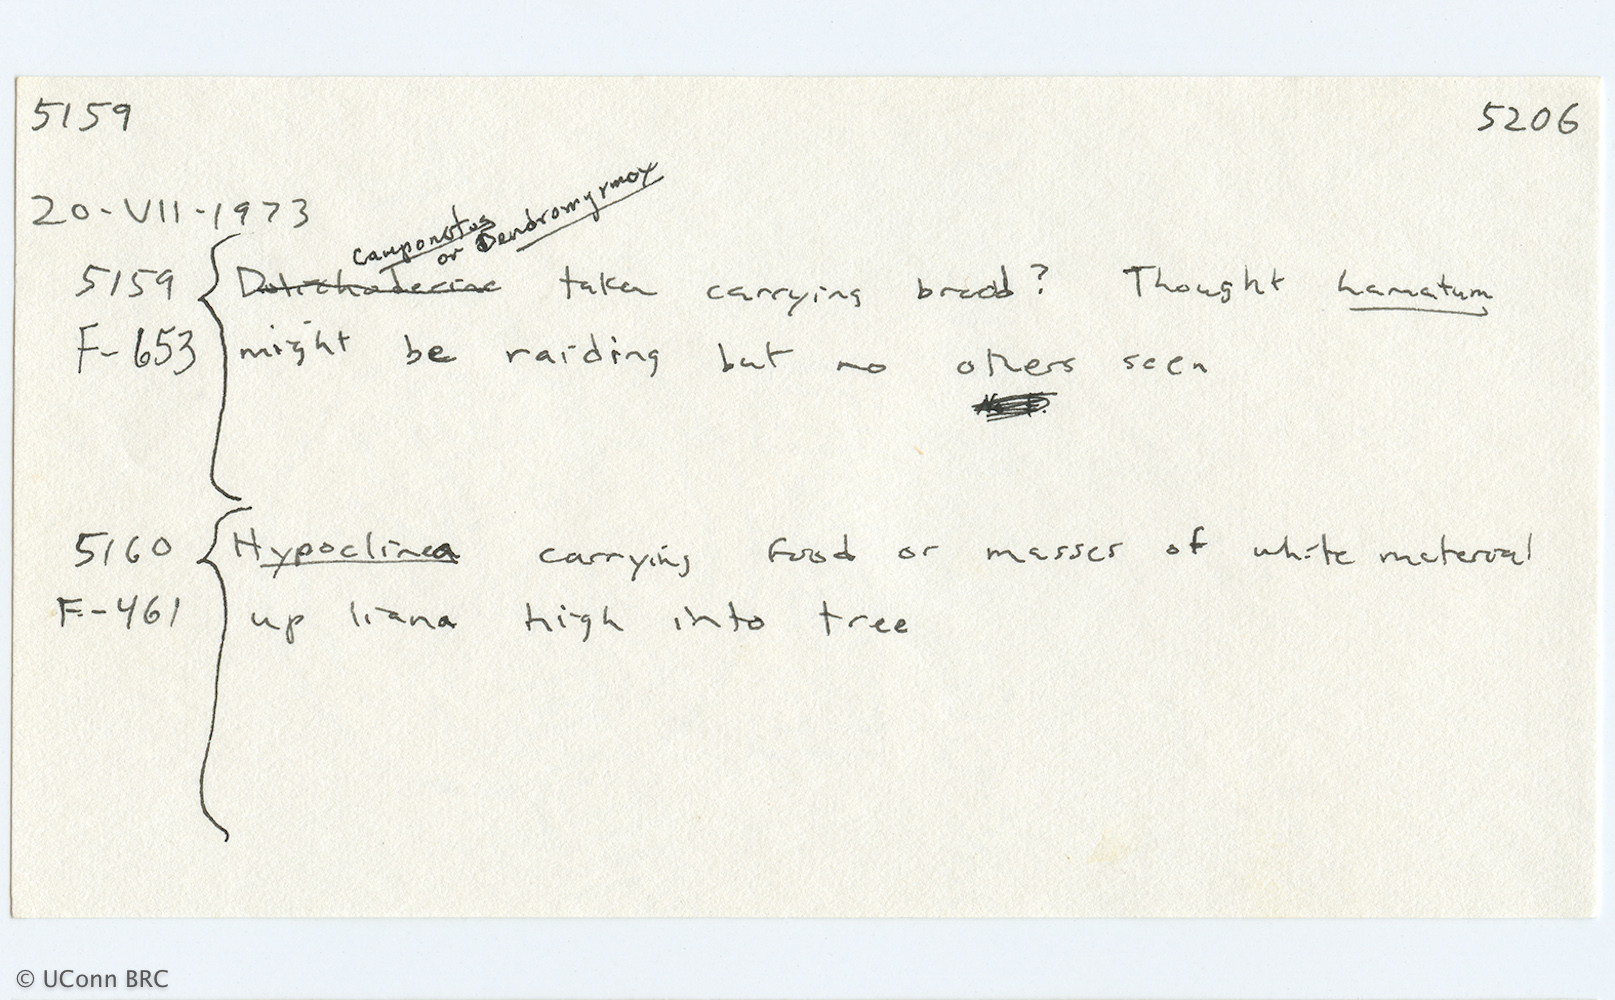 5159 5206
20-VII-1973
Camponotus
or Dendromyrmex
5159 Dolichoderine taken carrying brood? Thought hamatum
F-653 might be raiding but no others seen
5160 Hypoclinea carrying food or masses of white material
F-461 up liana high into tree
© UConn BRC